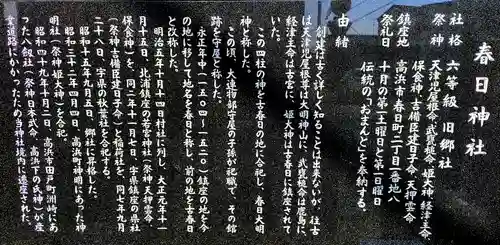 春日神社
社格 六等級 旧郷社
祭神 天津児屋根命 武甕槌命 姫大神 経津主命
保食神 吉備臣建日子命 天押雲命
鎮座地 高浜市春日町二丁目一番地八
祭礼日 十月の第一土曜日と第一日曜日
伝統の「おまんと」を奉納する。
由緒
創建は古く詳しく知ることは出来ないが、往古
は天津児屋根命は大明神山に、武甕槌命は鹿島に、
経津主命は古宮に、姫大神は古春日に鎮座されて
いた。
この四柱の神を古春日の地に合祀し、春日大明
神と称した。
この頃、大連物部守屋の子孫が祀職で、その館
跡を守屋と称した。
永正年中(一五〇四〜一五二〇)鎮座の地を今
の地に移して地名を春日と称し、前の地を古春日
と改称した。
明治五年十月十四日村社に列し、大正元年十一
月十五日、北浦鎮座の古宮神社(祭神 天押雲命、
保食神)を、同二年十一月七日、字県鎮座の県社
(祭神吉備臣建日子命)と稲荷社を、同七年九月
二十八日、字県の秋葉社を合祀する。
昭和十五年九月五日、郷社に昇格した。
昭和三十二年四月、高浜町神明にあった神
明社(祭神姫大神)を合祀。
昭和四十九年十月二日、高浜市田戸町洲崎にあ
った八剱社(祭神日本武命、高浜下の氏神)が産
業道路にかかったため当神社境内に遷座された。